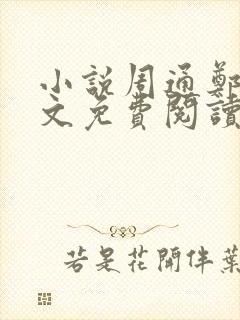 小說周通鄭
文免費閱讀
若是花開伴葉